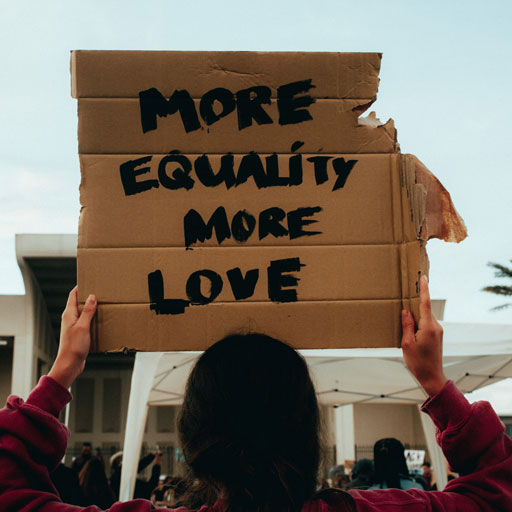 MORE
EQUALITY
MORE
LOVE